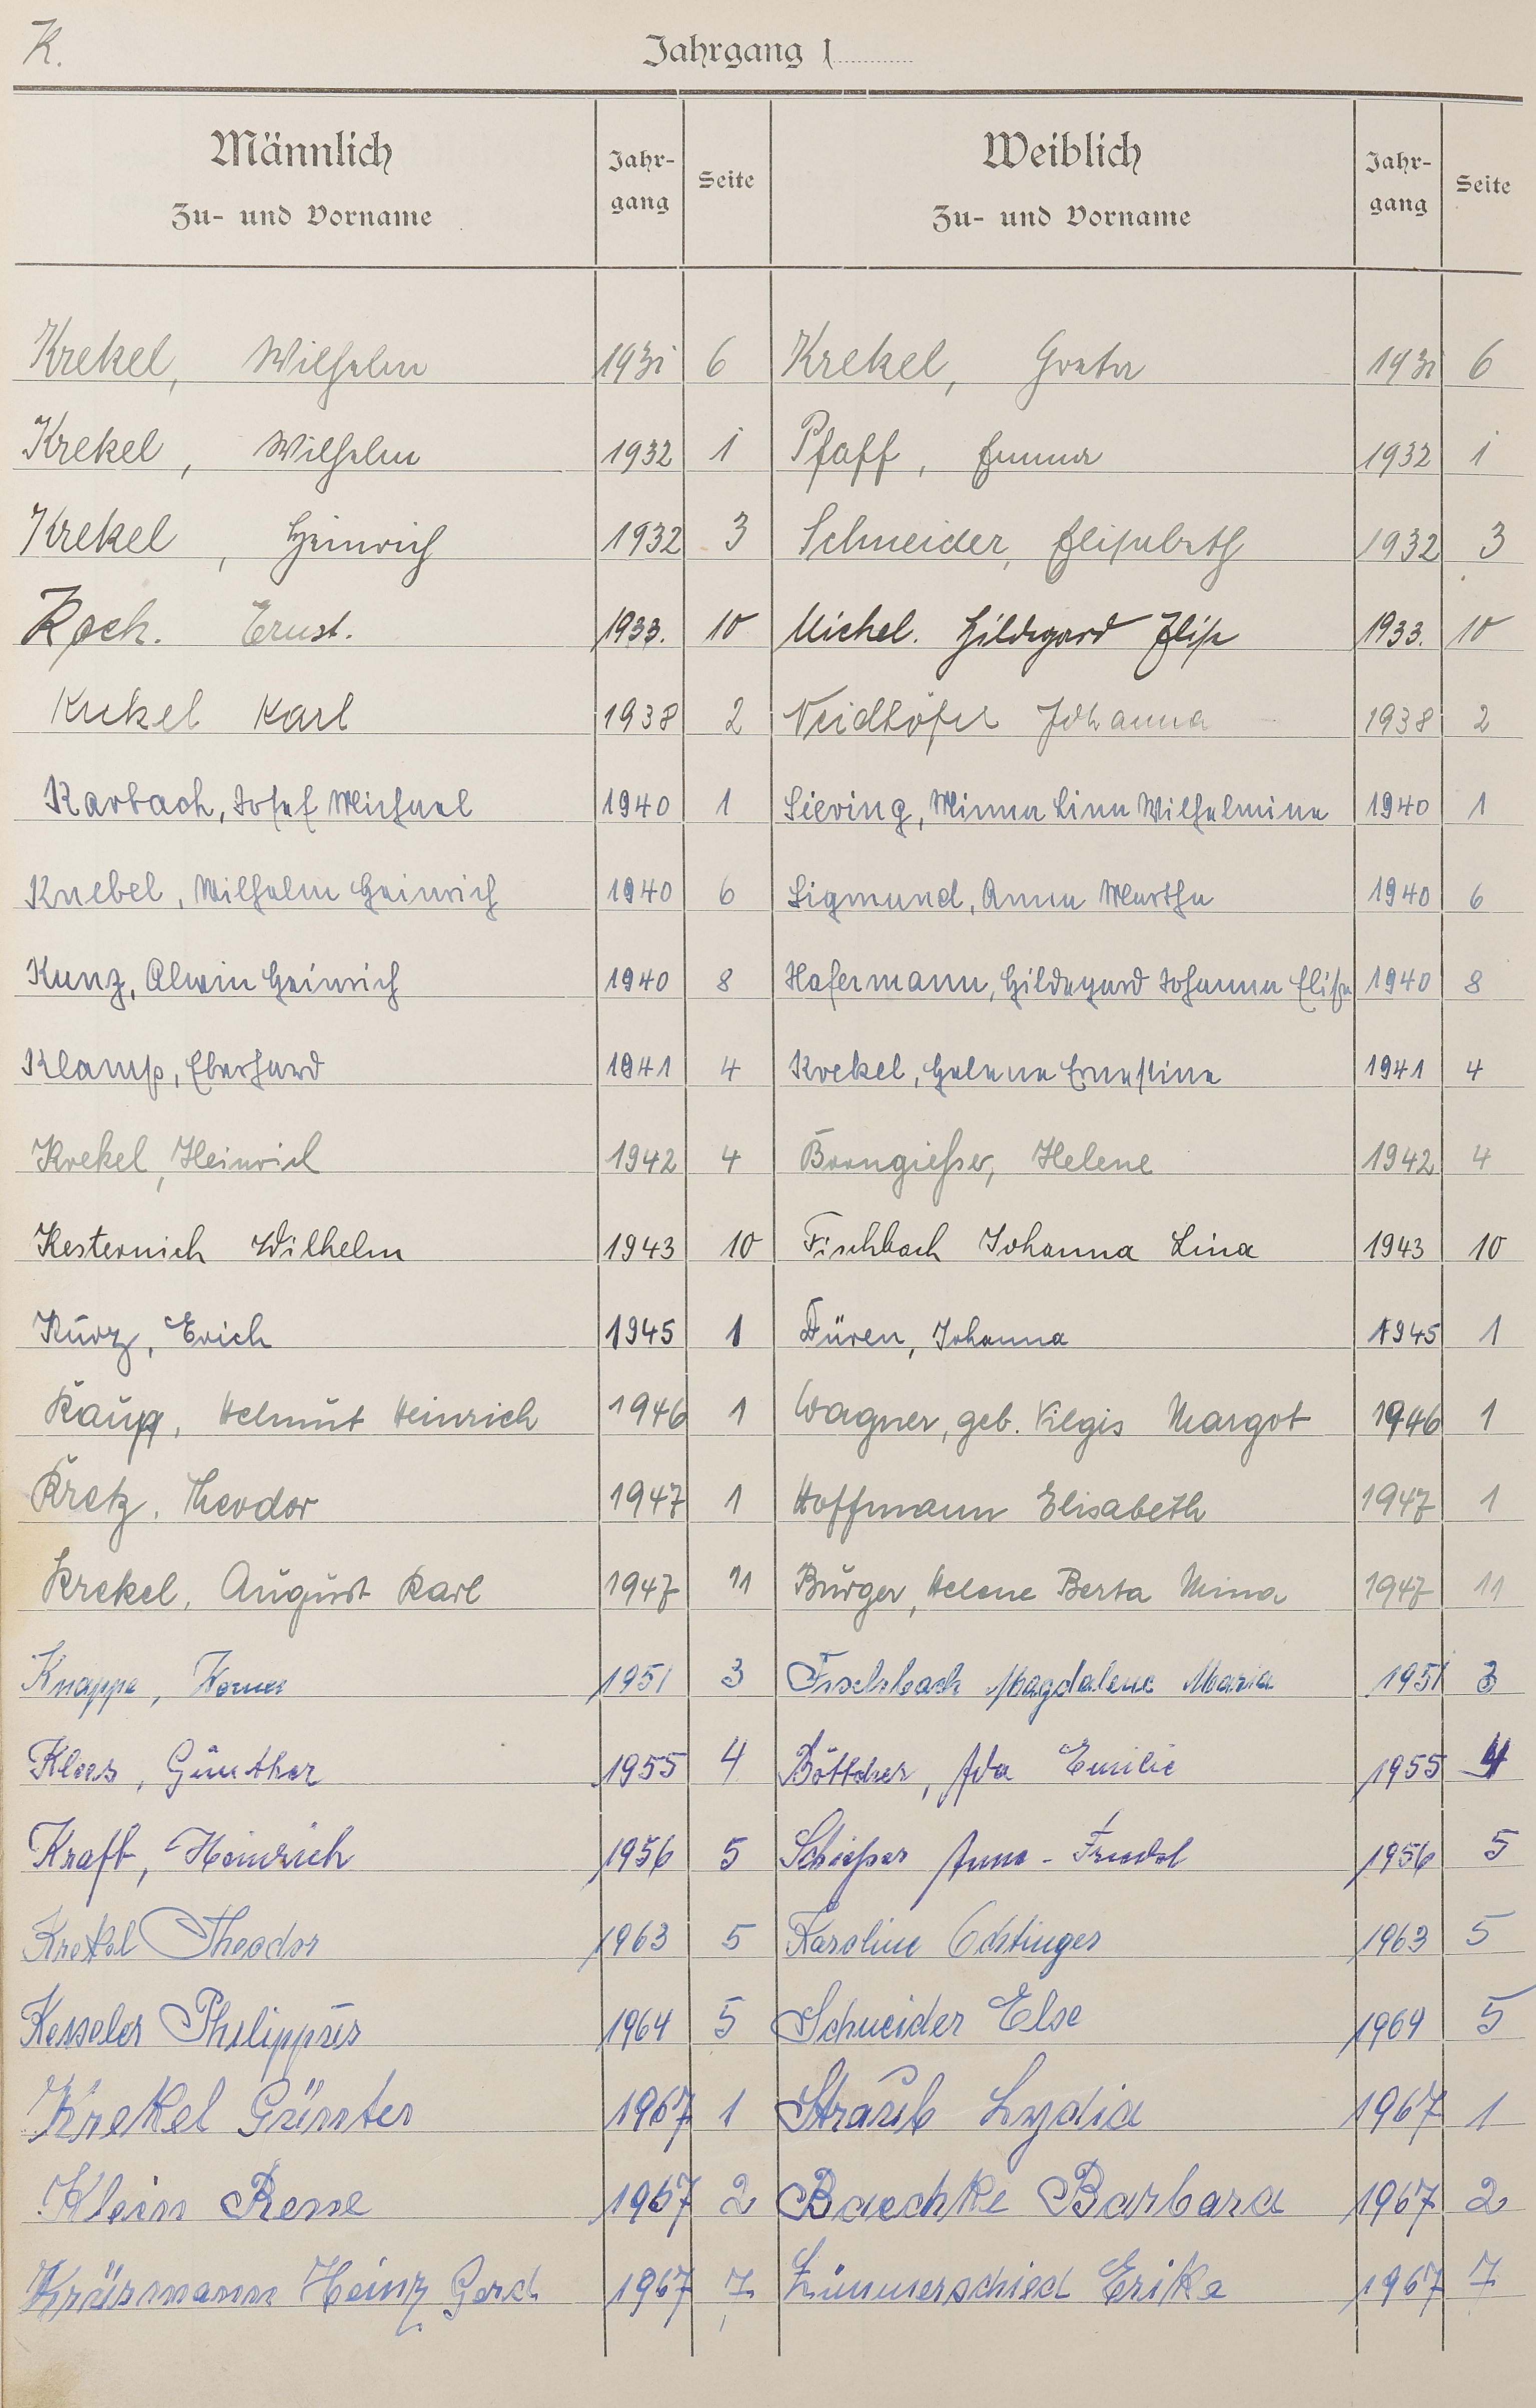 K.
Jahrgang 1
Männlich Zu- und Vorname Jahr-gang Seite Weiblich Zu- und Vorname Jahr-gang Seite
Krekel, Wilhelm 1931 6 Krekel, Greta 1931 6
Krekel, Wilhelm 1932 1 Pfaff, Emma 1932 1
Krekel, Heinrich 1932 3 Schneider, Elisabeth 1932 3
Koch. Ernst. 1933. 10 Michel. Hildegard Elise 1933. 10
Krekel Karl 1938 2 Neidhöfer Johanna 1938 2
Karbach, Josef Michael 1940 1 Siering, Minna Lina Wilhelmine 1940 1
Knebel, Wilhelm Heinrich 1940 6 Sigmund, Anna Martha 1940 6
Kunz, Alwin Heinrich 1940 8 Hafermann, Hildegard Johanna Elise 1940 8
Klamp, Eberhard 1941 4 Krekel, Helene Ernestine 1941 4
Krekel, Heinrich 1942 4 Borngießer, Helene 1942 4
Kesternich Wilhelm 1943 10 Fischbach Johanna Lina 1943 10
Kurz, Erich 1945 1 Düren, Johanna 1945 1
Kaupp, Helmut Heinrich 1946 1 Wagner, geb. Kilgis Margot 1946 1
Kretz, Theodor 1947 1 Hoffmann Elisabeth 1947 1
Krekel, August Karl 1947 11 Bürger, Helene Berta Mina 1947 11
Knappe, Werner 1951 3 Fischbach Magdalene Maria 1951 3
Klees, Günther 1955 4 Böttcher, Ida Emilie 1955 4
Kraft, Heinrich 1956 5 Schießer Anna - Friedel 1956 5
Krekel Theodor 1963 5 Karoline Ochtinger 1963 5
Kesseler Philippus 1964 5 Schneider Else 1964 5
Krekel Günter 1967 1 Straub Lydia 1967 1
Klein Rene 1967 2 Baechke Barbara 1967 2
Heinz Gerd 1967 7 Zimmerschied Erika 1967 7